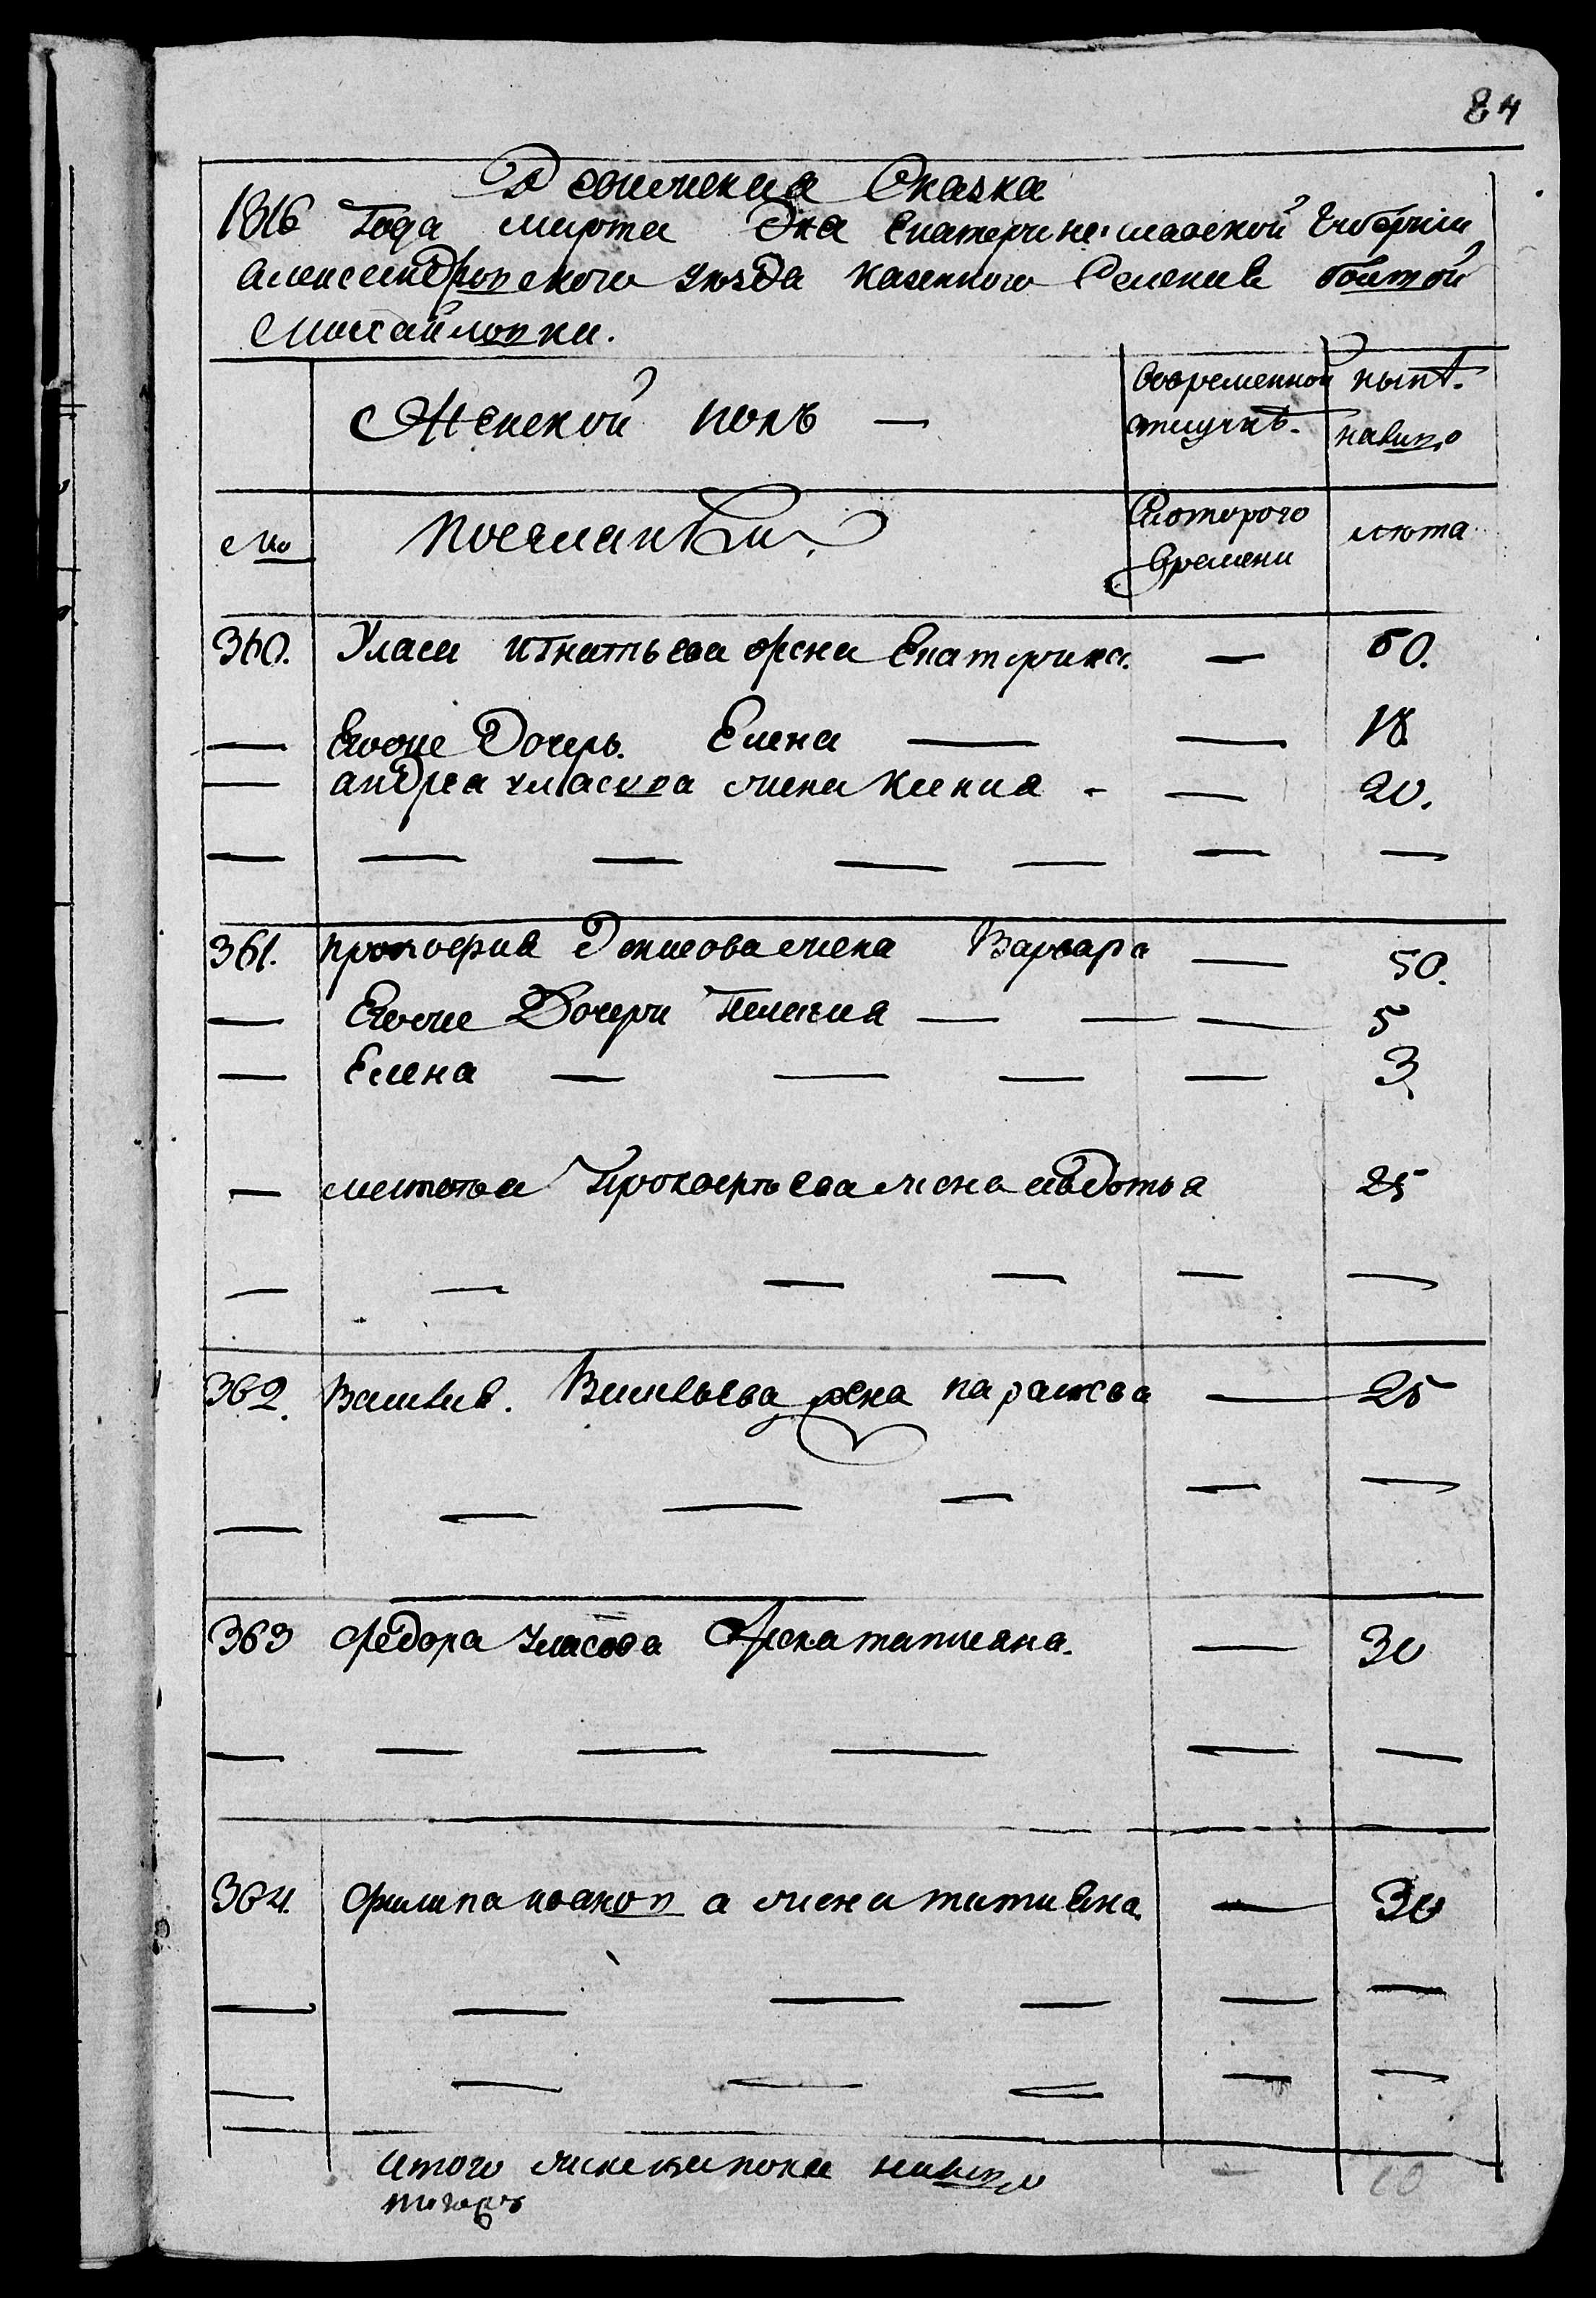 84
Ревижская Сказка
1816 Года марта Дня Екатеринославской Губернии
Александровского уѣзда казенного Селения
Михайловки.
Женской полъ —
Во временной отлучкѣ.
нынѣ на лицо
№
Поселянки.
Съ которого времени
лѣта
360. Уласа игнатьева жена Екатерина. — 50.
— Ево же Дочерь. Елена — — 18
— андрея уласова жена ксения - — 20.
— — — — — — —
361. прокофия Денисова жена Варвара — 50.
— Ево же Дочери Пелагия — — — 5
— Елена — — — — 3
— Прокофьева жена авдотья 25
— — — — — —
362. Василия. Васильева жена параскева — 25
— — — — — —
363 федора уласова Жена татияна. — 30
— — — — — —
364. филипа иванова жена татияна — 30
— — — — — —
— — — — — —
итого женска пола на лицо — 10